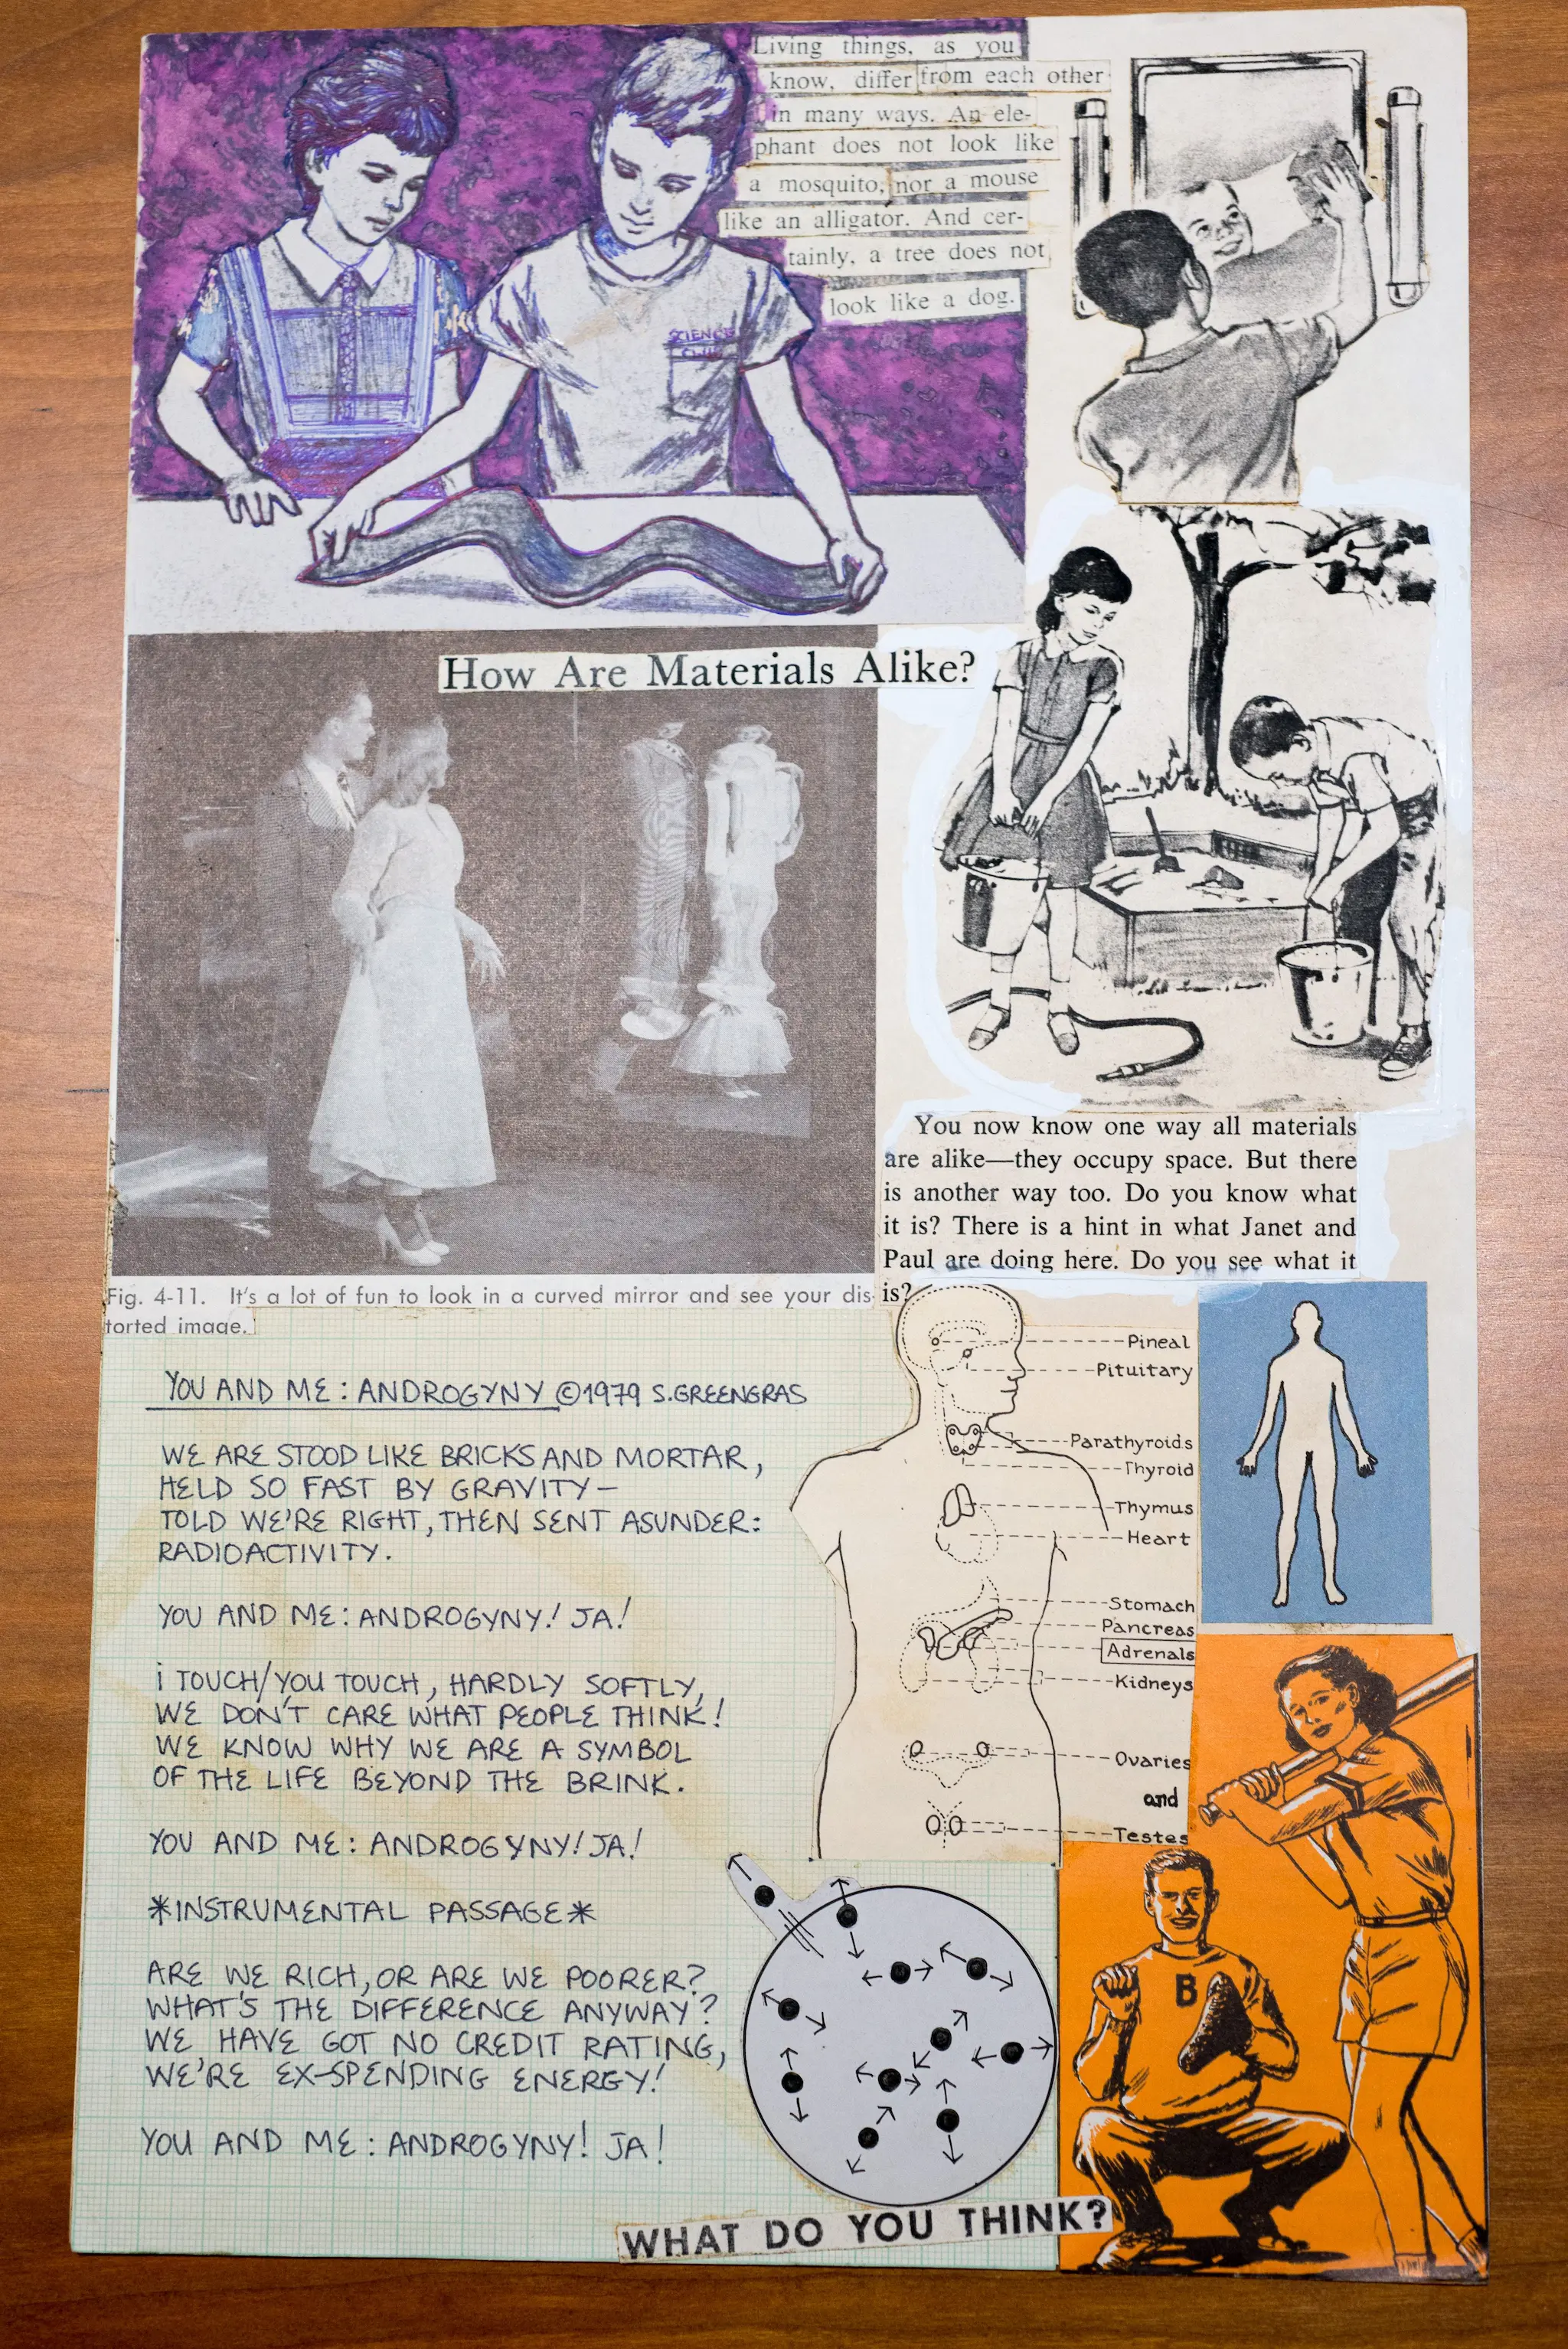 Living things, as you
know, differ from each other
in many ways. An ele-
phant does not look like
a mosquito, nor a mouse
like an alligator. And cer-
tainly, a tree does not
look like a dog.
SCIENCE
CLUB
How Are Materials Alike?
You now know one way all materials
are alike—they occupy space. But there
is another way too. Do you know what
it is? There is a hint in what Janet and
Paul are doing here. Do you see what it
is?
Fig. 4-11. It's a lot of fun to look in a curved mirror and see your dis-
torted image.
YOU AND ME: ANDROGYNY ©1979 S.GREENGRAS
WE ARE STOOD LIKE BRICKS AND MORTAR,
HELD SO FAST BY GRAVITY—
TOLD WE'RE RIGHT, THEN SENT ASUNDER:
RADIOACTIVITY.
YOU AND ME: ANDROGYNY! JA!
i TOUCH/YOU TOUCH, HARDLY SOFTLY,
WE DON'T CARE WHAT PEOPLE THINK!
WE KNOW WHY WE ARE A SYMBOL
OF THE LIFE BEYOND THE BRINK.
YOU AND ME: ANDROGYNY! JA!
*INSTRUMENTAL PASSAGE*
ARE WE RICH, OR ARE WE POORER?
WHAT'S THE DIFFERENCE ANYWAY?
WE HAVE GOT NO CREDIT RATING,
WE'RE EX-SPENDING ENERGY!
YOU AND ME: ANDROGYNY! JA!
Pineal
Pituitary
Parathyroids
Thyroid
Thymus
Heart
Stomach
Pancreas
Adrenals
Kidneys
Ovaries
and
Testes
B
WHAT DO YOU THINK?